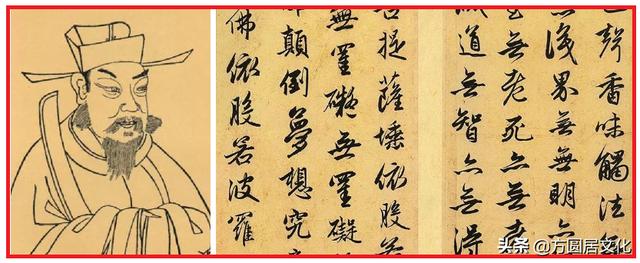 聲香味觸法
識界無無明亦
至無老死亦無老
滅道無智亦無得
菩提薩埵依般若
無罣礙無罣礙
顛倒夢想究
佛依般若波羅
头条 @方圆居文化